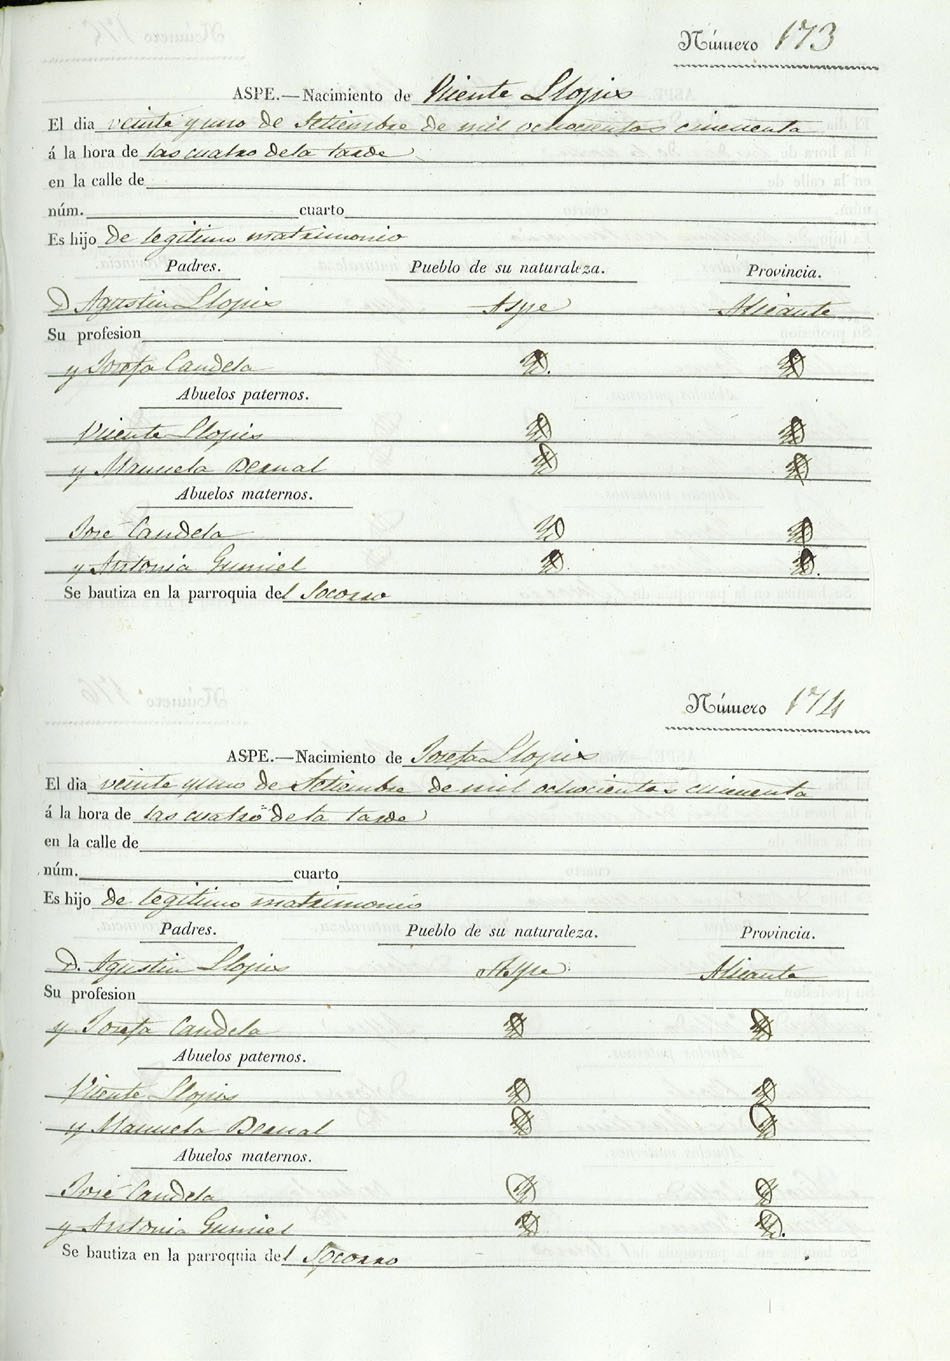 Número 173
ASPE.—Nacimiento de Vicente Llopis
El dia veinte y uno de Setiembre de mil ochocientos cincuenta
á la hora de las cuatro de la tarde
en la calle de
núm. cuarto
Es hijo de legitimo matrimonio
Padres. Pueblo de su naturaleza. Provincia.
D. Agustin Llopis Aspe Alicante
Su profesion
y Josefa Candela
Abuelos paternos.
Vicente Llopis
y Manuela Bernal
Abuelos maternos.
José Candela
y Antonia Gumiel
Se bautiza en la parroquia del Socorro
Número 174
ASPE.—Nacimiento de Josefa Llopis
El dia veinte y uno de Setiembre de mil ochocientos cincuenta
á la hora de las cuatro de la tarde
en la calle de
núm. cuarto
Es hijo de legitimo matrimonio
Padres. Pueblo de su naturaleza. Provincia.
D. Agustin Llopis Aspe Alicante
Su profesion
y Josefa Candela
Abuelos paternos.
Vicente Llopis
y Manuela Bernal
Abuelos maternos.
José Candela
y Antonia Gumiel
Se bautiza en la parroquia del Socorro